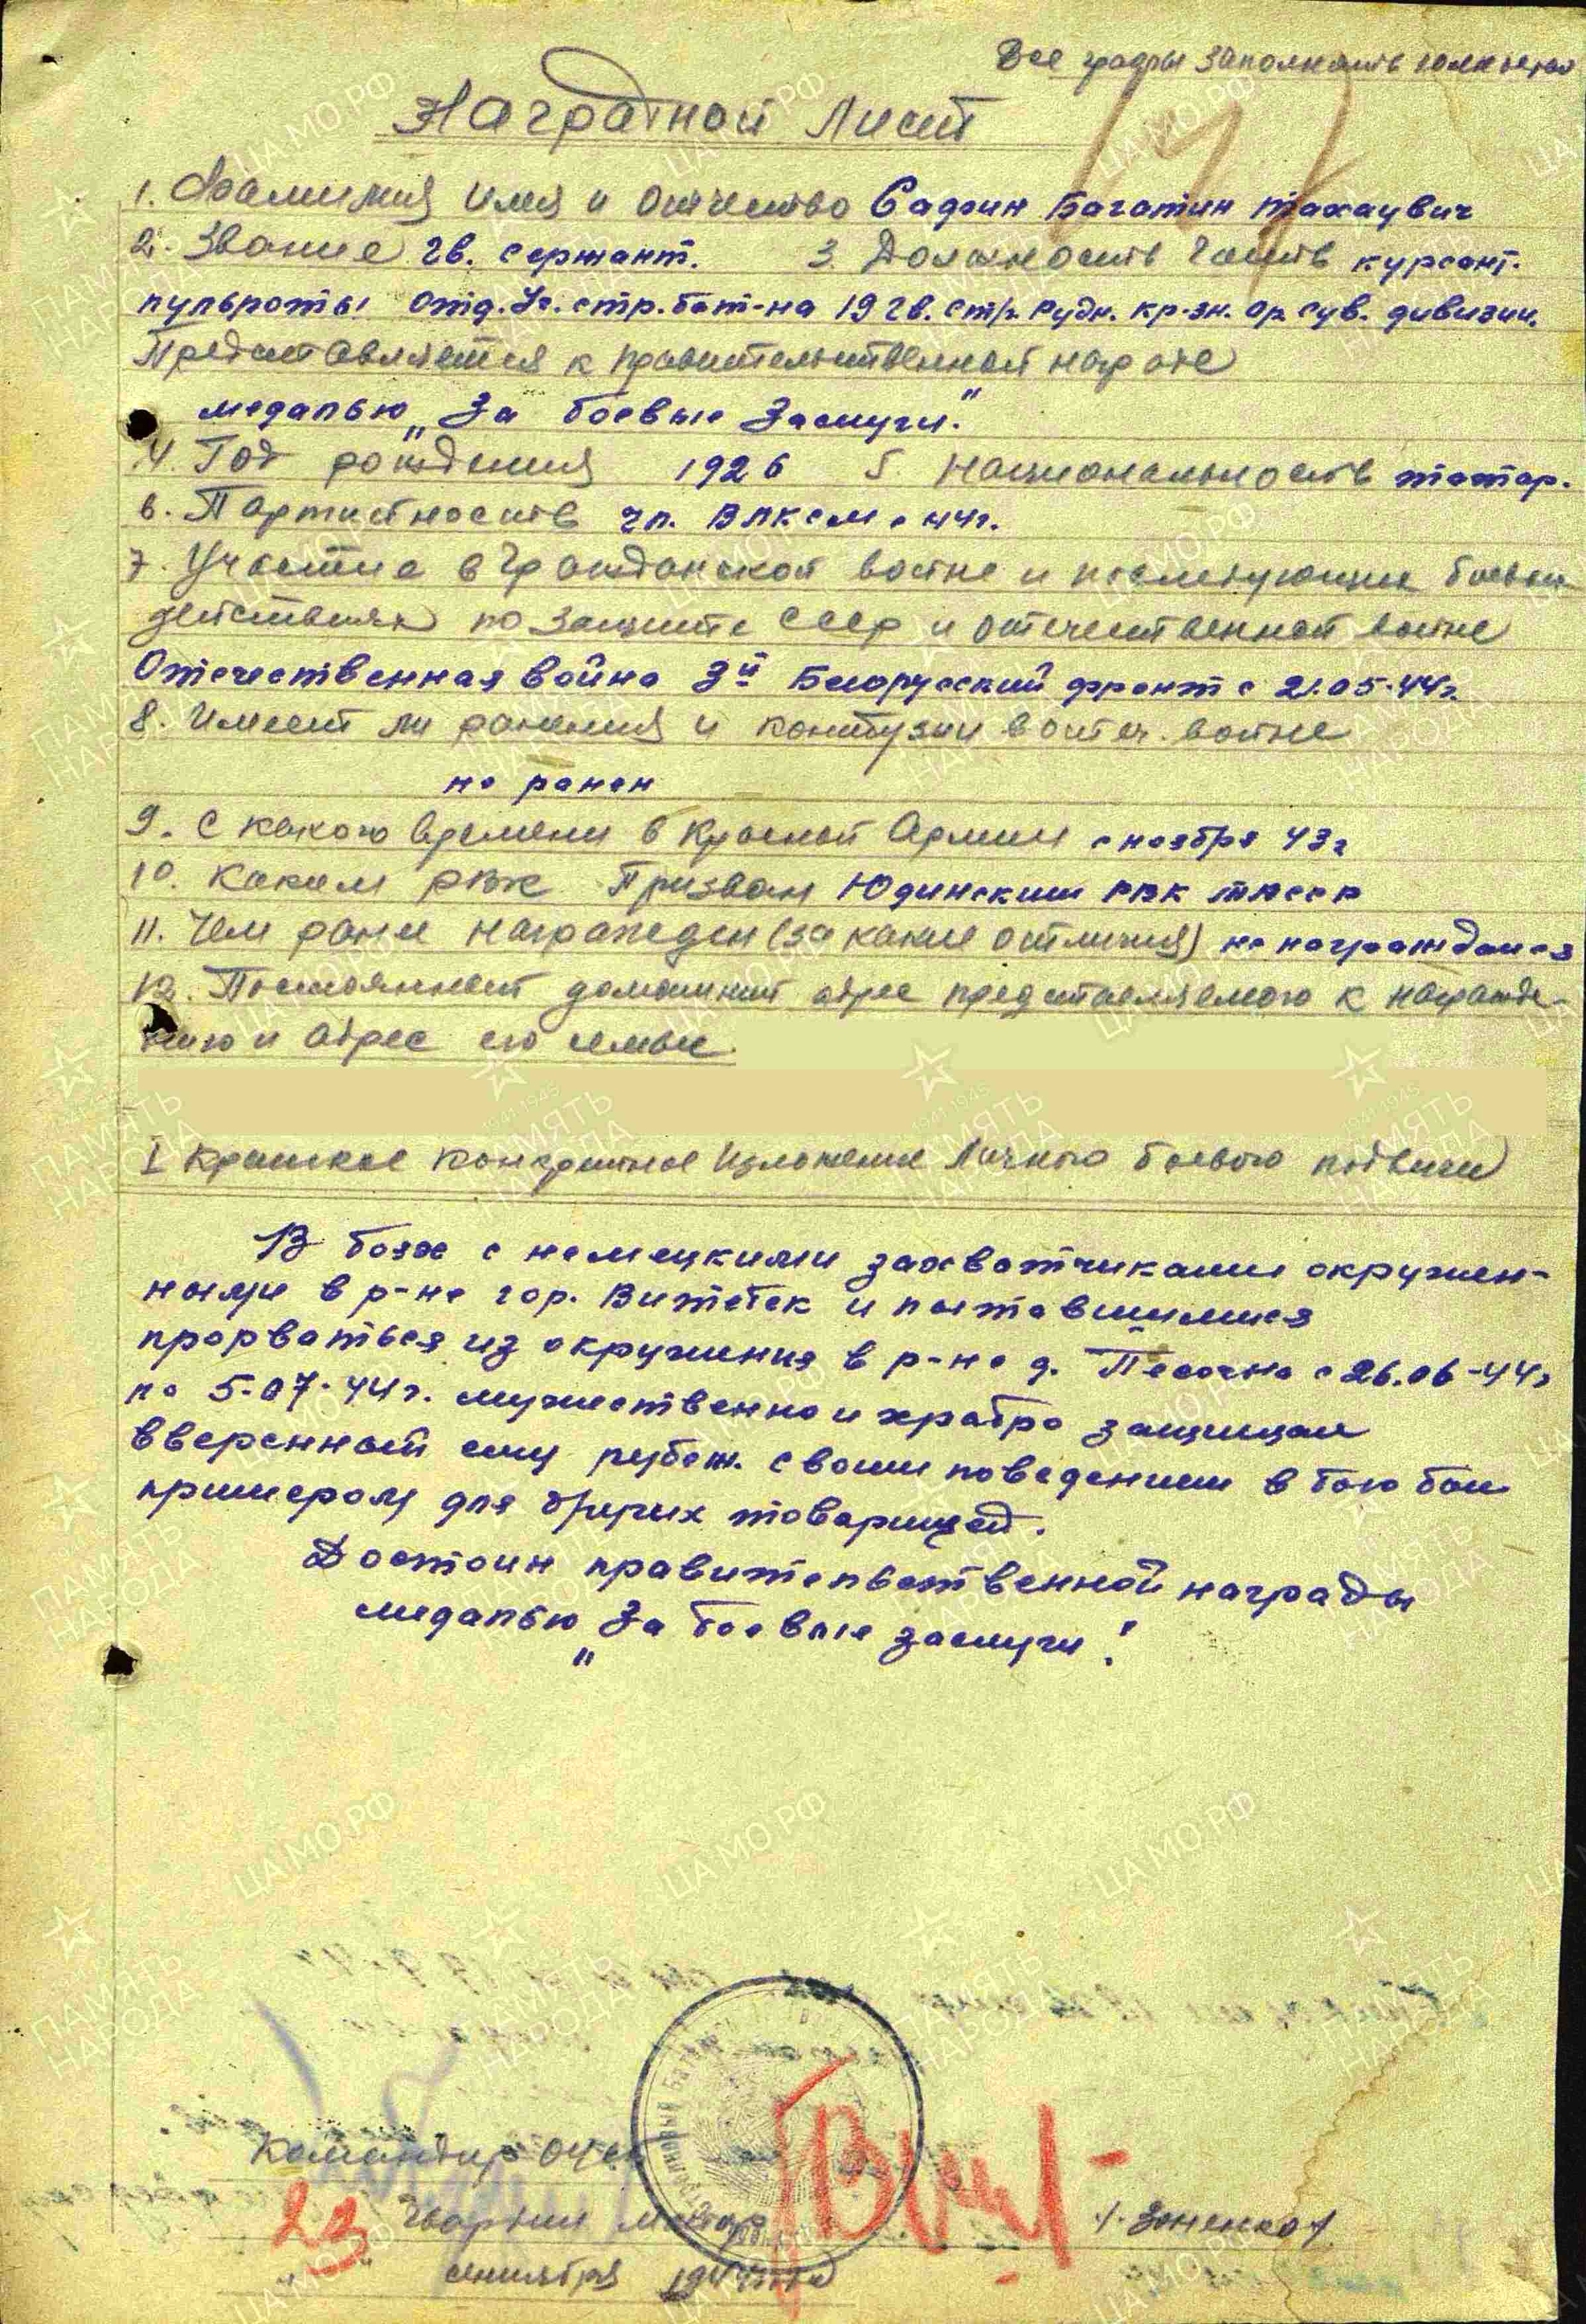 Все графы заполнять полностью
Наградной Лист
1. Фамилия Имя и Отчество Садрин Багатин Тахаувич
2. Звание гв. сержант. 3. Должность Часть курсант.
пульроты Отд. Уч. стр. бат-на 19 гв. стр. Рудн. кр-зн. ор. Сув. дивизии.
Представляется к правительственной награде
медалью „За боевые Заслуги."
4. Год рождения 1926 5. Национальность татар.
6. Партийность чл. ВЛКСМ с 44г.
7. Участие в Гражданской войне и последующих боевых
действиях по защите СССР и отечественной войне
Отечественная война 3й Белорусский фронт с 21.05.44г.
8. Имеет ли ранения и контузии в отеч. войне
не ранен
9. С какого времени в Красной Армии с ноября 43г
10. Каким РВК Призван Юдинским РВК ТАССР
11. Чем ранее награжден (за какие отличия) не награждался
12. Постоянный домашний адрес представляемого к награжде-
нию и адрес его семьи.
I Краткое конкретное изложение Личного боевого подвига
В боях с немецкими захватчиками окружен-
ными в р-не гор. Витебск и пытавшимися
прорваться из окружения в р-не д. Песочна с 26.06-44г
по 5.07.44г. мужественно и храбро защищал
вверенный ему рубеж. своим поведением в бою был
примером для других товарищей.
Достоин правительственной награды
медалью „За боевые заслуги!
Командир ОУСБ
Гвардии Майор /. Зоненко /
23 сентября 1944 года
ПАМЯТЬ НАРОДА
ЦАМО.РФ